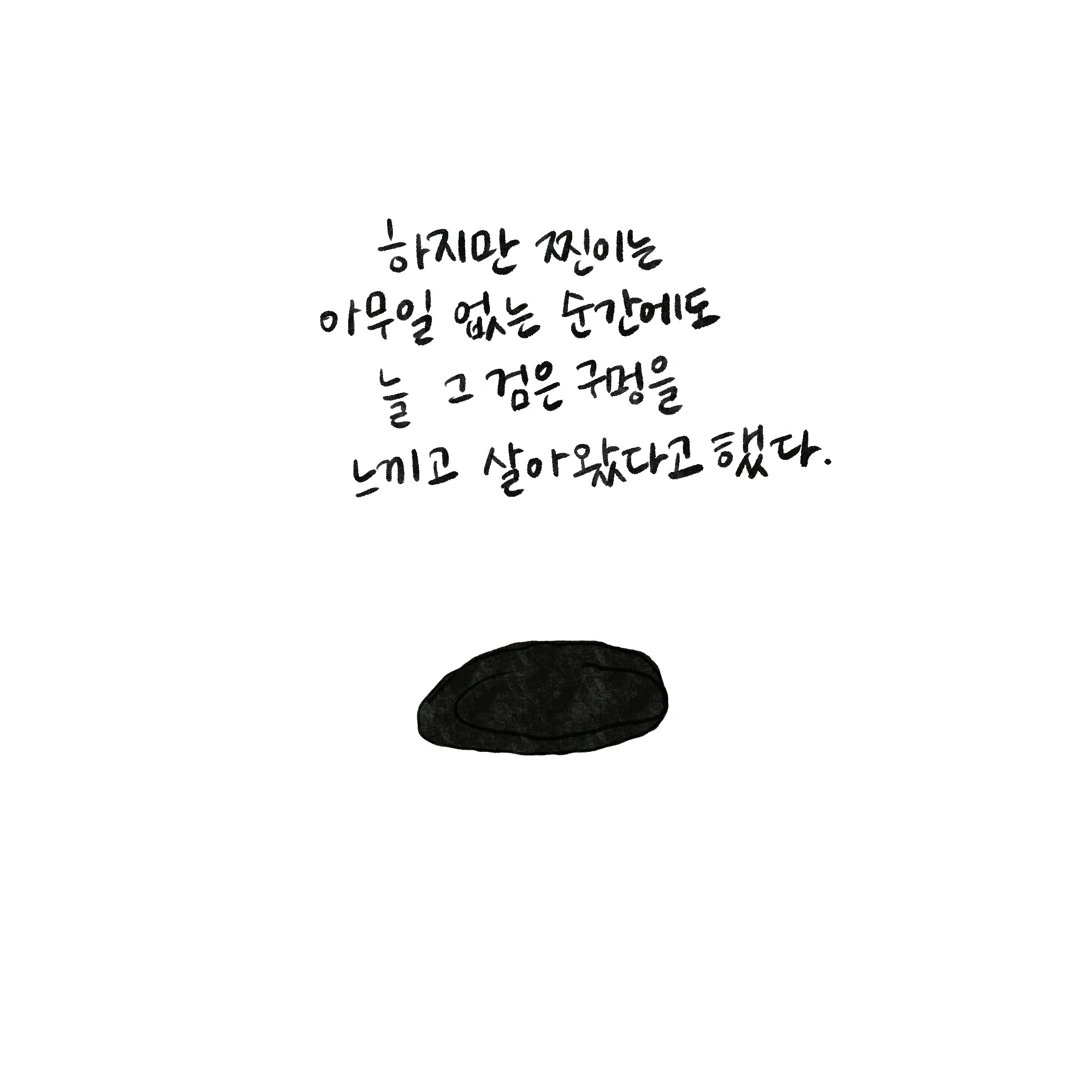 하지만 찐이는
아무일 없는 순간에도
늘 그 검은 구멍을
느끼고 살아왔다고 했다.